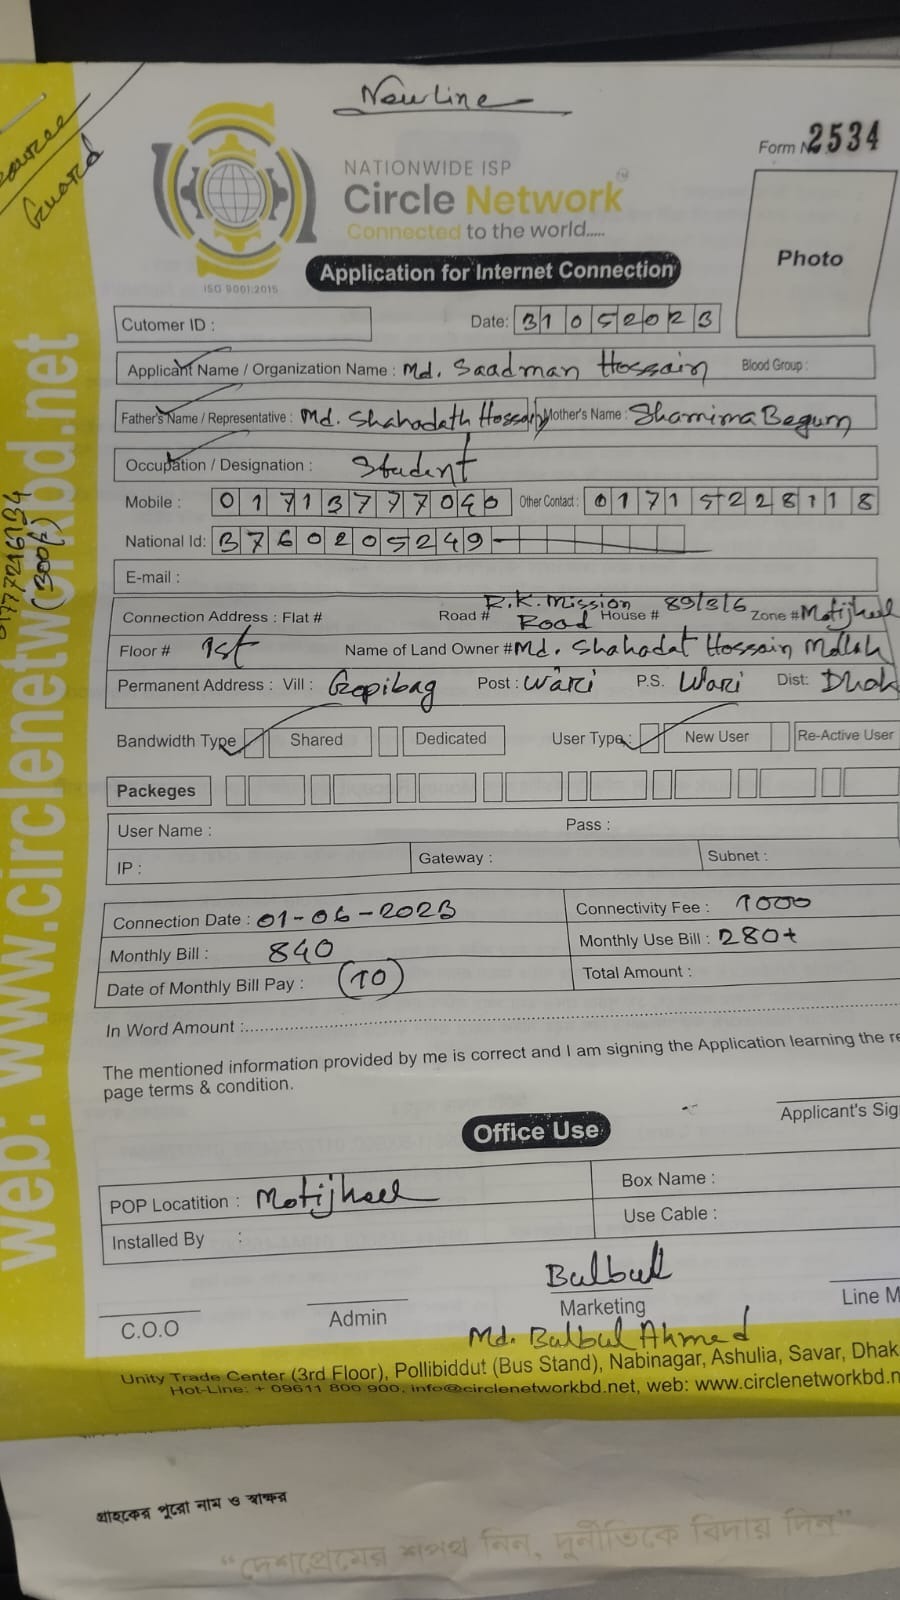 New Line
Source
Guard
Form No 2534
NATIONWIDE ISP
Circle Network
Connected to the world.....
ISO 9001:2015
Application for Internet Connection
Photo
Cutomer ID :
Date: 31 05 2023
Applicant Name / Organization Name : Md. Saadman Hossain Blood Group :
Father's Name / Representative : Md. Shahadath Hossain Mother's Name : Shamima Begum
Occupation / Designation : Student
Mobile : 01713777040 Other Contact : 01715228118
National Id: 3760205249
E-mail :
Connection Address : Flat # Road # R.K. Mission Road House # 89/3/6 Zone # Motijheel
Floor # 1st Name of Land Owner # Md. Shahadat Hossain Mollah
Permanent Address : Vill : Gopibag Post : Wari P.S. Wari Dist: Dhak
Bandwidth Type Shared Dedicated User Type : New User Re-Active User
Packeges
User Name : Pass :
IP : Gateway : Subnet :
Connection Date : 01-06-2023 Connectivity Fee : 1000
Monthly Bill : 840 Monthly Use Bill : 280+
Date of Monthly Bill Pay : 10 Total Amount :
In Word Amount :
The mentioned information provided by me is correct and I am signing the Application learning the re
page terms & condition.
Applicant's Sig
Office Use
POP Locatition : Motijheel Box Name :
Installed By : Use Cable :
Bulbul
C.O.O Admin Marketing Line M
Md. Bulbul Ahmed
Unity Trade Center (3rd Floor), Pollibiddut (Bus Stand), Nabinagar, Ashulia, Savar, Dhak
Hot-Line: + 09611 800 900, info@circlenetworkbd.net, web: www.circlenetworkbd.n
web: www.circlenetworkbd.net
01777216134
(300/-)
গ্রাহকের পুরো নাম ও স্বাক্ষর
“দেশপ্রেমের শপথ নিন, দুর্নীতিকে বিদায় দিন”